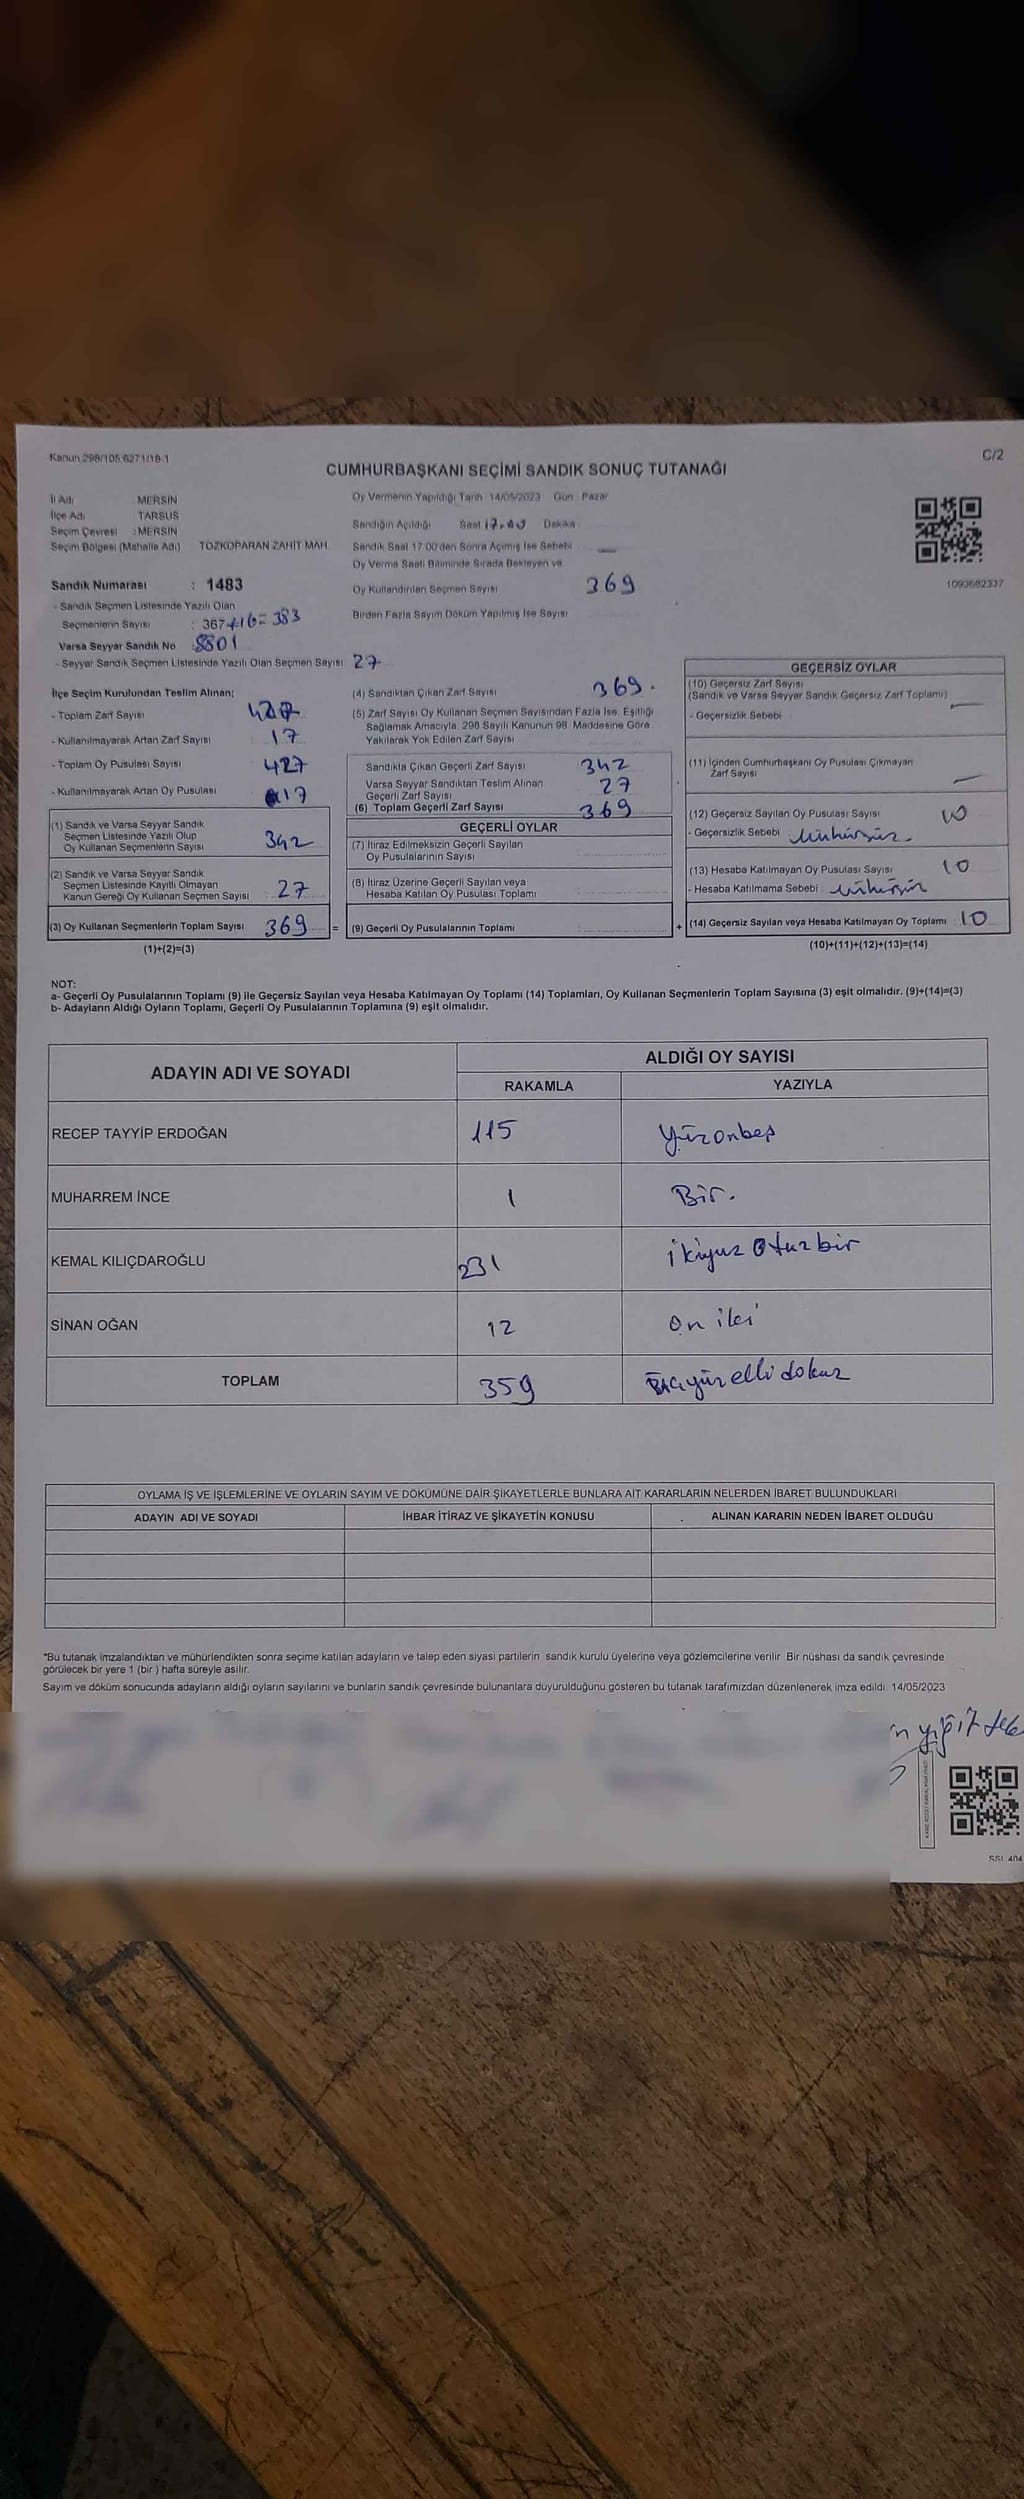 Kanun 298/105,6271/18-1
C/2
CUMHURBAŞKANI SEÇİMİ SANDIK SONUÇ TUTANAĞI
İl Adı MERSİN
İlçe Adı TARSUS
Seçim Çevresi : MERSİN
Seçim Bölgesi (Mahalle Adı) TOZKOPARAN ZAHİT MAH.
Oy Vermenin Yapıldığı Tarih 14/05/2023 Gün Pazar
Sandığın Açıldığı Saat 17.00 Dakika
Sandık Saat 17:00'den Sonra Açımış İse Sebebi
Oy Verme Saati Bitiminde Sırada Bekleyen ve
Oy Kullandırılan Seçmen Sayısı 369
Birden Fazla Sayım Döküm Yapılmış İse Sayısı
1090682337
Sandık Numarası : 1483
- Sandık Seçmen Listesinde Yazılı Olan
Seçmenlerin Sayısı : 367+16=383
Varsa Seyyar Sandık No 8801
- Seyyar Sandık Seçmen Listesinde Yazılı Olan Seçmen Sayısı 27
İlçe Seçim Kurulundan Teslim Alınan;
- Toplam Zarf Sayısı
- Kullanılmayarak Artan Zarf Sayısı 17
- Toplam Oy Pusulası Sayısı 427
- Kullanılmayarak Artan Oy Pusulası 17
(1) Sandık ve Varsa Seyyar Sandık
Seçmen Listesinde Yazılı Olup
Oy Kullanan Seçmenlerin Sayısı 342
(2) Sandık ve Varsa Seyyar Sandık
Seçmen Listesinde Kayıtlı Olmayan
Kanun Gereği Oy Kullanan Seçmen Sayısı 27
(3) Oy Kullanan Seçmenlerin Toplam Sayısı 369 =
(1)+(2)=(3)
(4) Sandıktan Çıkan Zarf Sayısı 369.
(5) Zarf Sayısı Oy Kullanan Seçmen Sayısından Fazla İse, Eşitliği
Sağlamak Amacıyla, 298 Sayılı Kanunun 98. Maddesine Göre
Yakılarak Yok Edilen Zarf Sayısı
Sandıkta Çıkan Geçerli Zarf Sayısı 342
Varsa Seyyar Sandıktan Teslim Alınan
Geçerli Zarf Sayısı 27
(6) Toplam Geçerli Zarf Sayısı 369
GEÇERLİ OYLAR
(7) İtiraz Edilmeksizin Geçerli Sayılan
Oy Pusulalarının Sayısı
(8) İtiraz Üzerine Geçerli Sayılan veya
Hesaba Katılan Oy Pusulası Toplamı
(9) Geçerli Oy Pusulalarının Toplamı +
GEÇERSİZ OYLAR
(10) Geçersiz Zarf Sayısı
(Sandık ve Varsa Seyyar Sandık Geçersiz Zarf Toplamı)
- Geçersizlik Sebebi
(11) İçinden Cumhurbaşkanı Oy Pusulası Çıkmayan
Zarf Sayısı
(12) Geçersiz Sayılan Oy Pusulası Sayısı 10
- Geçersizlik Sebebi Mühürsüz.
(13) Hesaba Katılmayan Oy Pusulası Sayısı 10
- Hesaba Katılmama Sebebi mühürsüz
(14) Geçersiz Sayılan veya Hesaba Katılmayan Oy Toplamı 10
(10)+(11)+(12)+(13)=(14)
NOT:
a- Geçerli Oy Pusulalarının Toplamı (9) ile Geçersiz Sayılan veya Hesaba Katılmayan Oy Toplamı (14) Toplamları, Oy Kullanan Seçmenlerin Toplam Sayısına (3) eşit olmalıdır. (9)+(14)=(3)
b- Adayların Aldığı Oyların Toplamı, Geçerli Oy Pusulalarının Toplamına (9) eşit olmalıdır.
ADAYIN ADI VE SOYADI ALDIĞI OY SAYISI
RAKAMLA YAZIYLA
RECEP TAYYİP ERDOĞAN 115 Yüzonbeş
MUHARREM İNCE 1 Bir.
KEMAL KILIÇDAROĞLU 231 ikiyuz Otuzbir
SİNAN OĞAN 12 on iki
TOPLAM 359 üçyüz elli dokuz
OYLAMA İŞ VE İŞLEMLERİNE VE OYLARIN SAYIM VE DÖKÜMÜNE DAİR ŞİKAYETLERLE BUNLARA AİT KARARLARIN NELERDEN İBARET BULUNDUKLARI
ADAYIN ADI VE SOYADI İHBAR İTİRAZ VE ŞİKAYETİN KONUSU ALINAN KARARIN NEDEN İBARET OLDUĞU
*Bu tutanak imzalandıktan ve mühürlendikten sonra seçime katılan adayların ve talep eden siyasi partilerin sandık kurulu üyelerine veya gözlemcilerine verilir. Bir nüshası da sandık çevresinde
görülecek bir yere 1 (bir ) hafta süreyle asılır.
Sayım ve döküm sonucunda adayların aldığı oyların sayılarını ve bunların sandık çevresinde bulunanlara duyurulduğunu gösteren bu tutanak tarafımızdan düzenlenerek imza edildi. 14/05/2023
yiğit
SSI 404